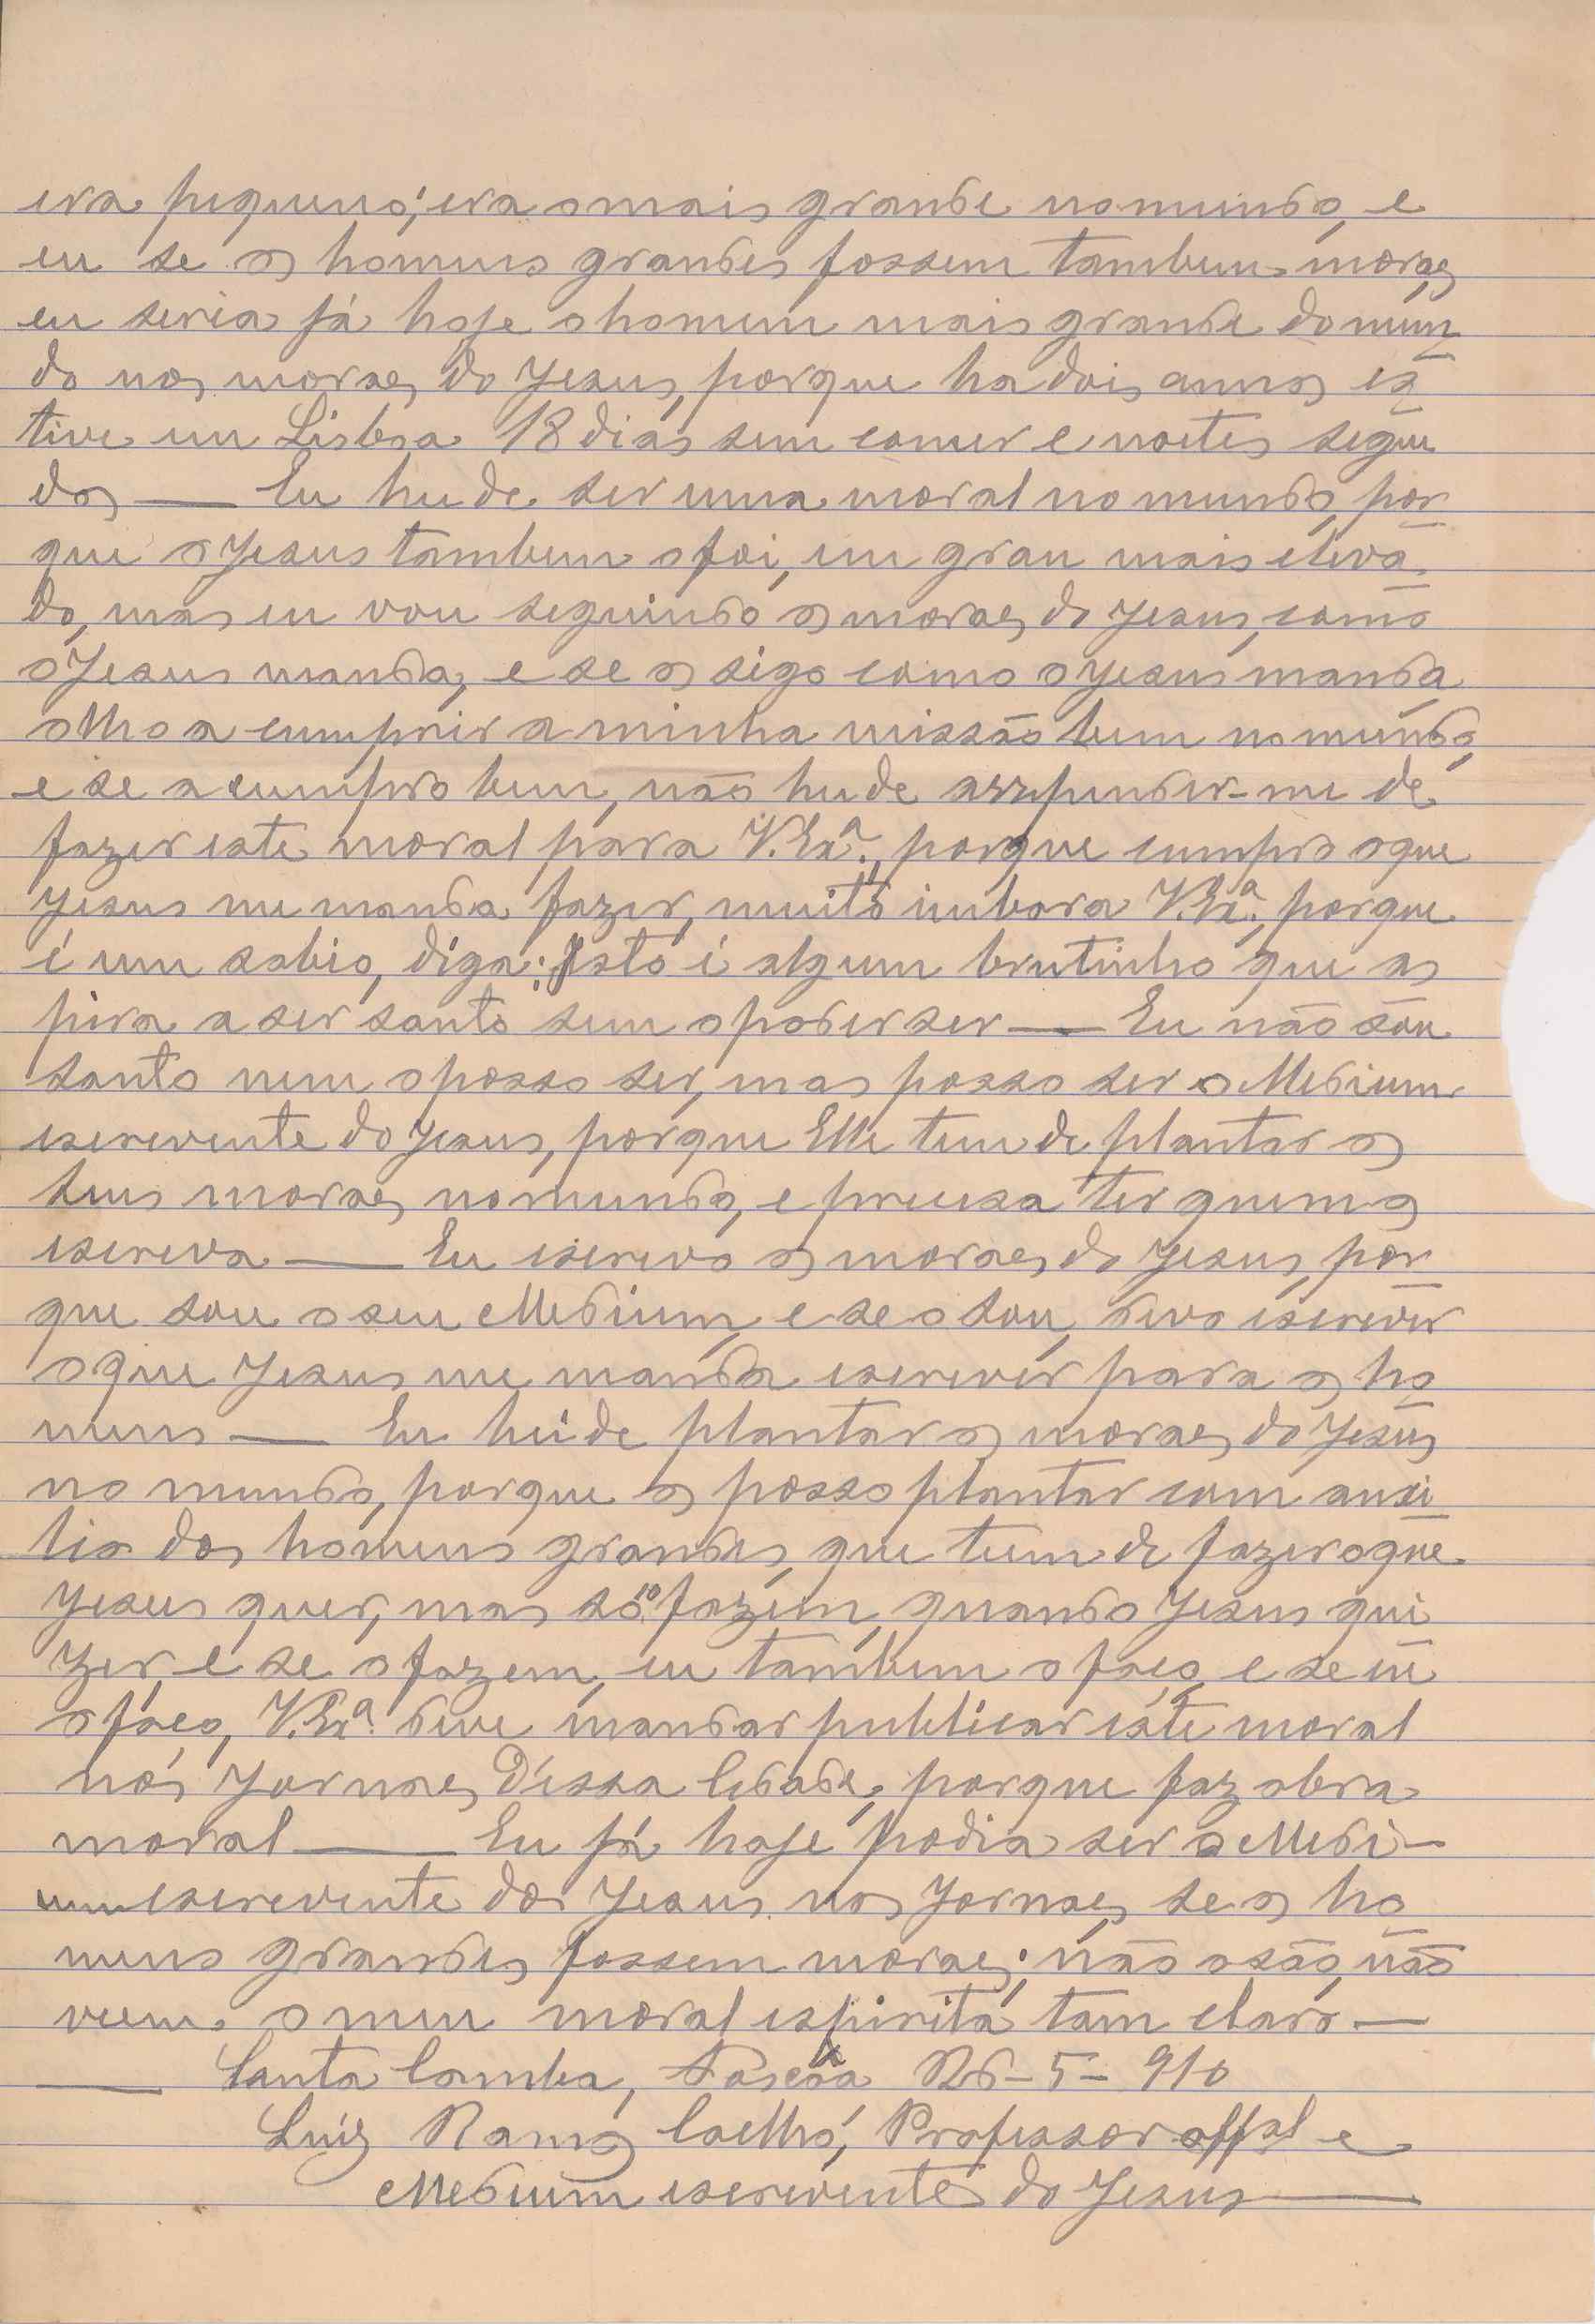 era pequeno; era o mais grande no mundo, e
eu se os homens grandes fossem tambem moraes
eu seria já hoje o homem mais grande do mun
do nos moraes do Jesus, porque ha dois annos es
tive em Lisboa 18 dias sem comer e noites segui
dos — Eu hei de ser uma moral no mundo, por
que o Jesus tambem o foi, em grau mais eleva
do, mas eu vou seguindo os moraes do Jesus, como
o Jesus manda, e se os sigo como o Jesus manda,
olho a cumprir a minha missão bem no mundo,
e se a cumpro bem, não hei de arrepender-me de
fazer este moral para V. Exª., porque cumpro o que
Jesus me manda fazer, muito embora V. Exª., porque
é um sabio, diga: Isto é algum brutinho que as
pira a ser santo sem o poder ser — Eu não sou
santo nem o posso ser, mas posso ser o Medium
escrevente do Jesus, porque Elle tem de plantar os
seus moraes no mundo, e precisa ter quem os
escreva — Eu escrevo os moraes do Jesus, por
que sou o seu Medium, e se o sou, devo escrever
o que Jesus me manda escrever para os ho
mens — Eu hei de plantar os moraes do Jesus
no mundo, porque os posso plantar com auxi
lio dos homens grandes, que teem de fazer o que
Jesus quer, mas só o fazem, quando Jesus qui
zer, e se o fazem, eu tambem o faço, e se eu
o faço, V. Exª. deve mandar publicar este moral
nos Jornaes d'essa Cidade, porque faz obra
moral — Eu já hoje podia ser o Medi-
um escrevente do Jesus nos Jornaes, se os ho
mens grandes fossem moraes; não o são, não
veem o meu moral espirita tam claro —
— Santa Comba, Foscôa 26-5-910
Luiz Ramos Coelho, Professor offal e
Medium escrevente do Jesus —